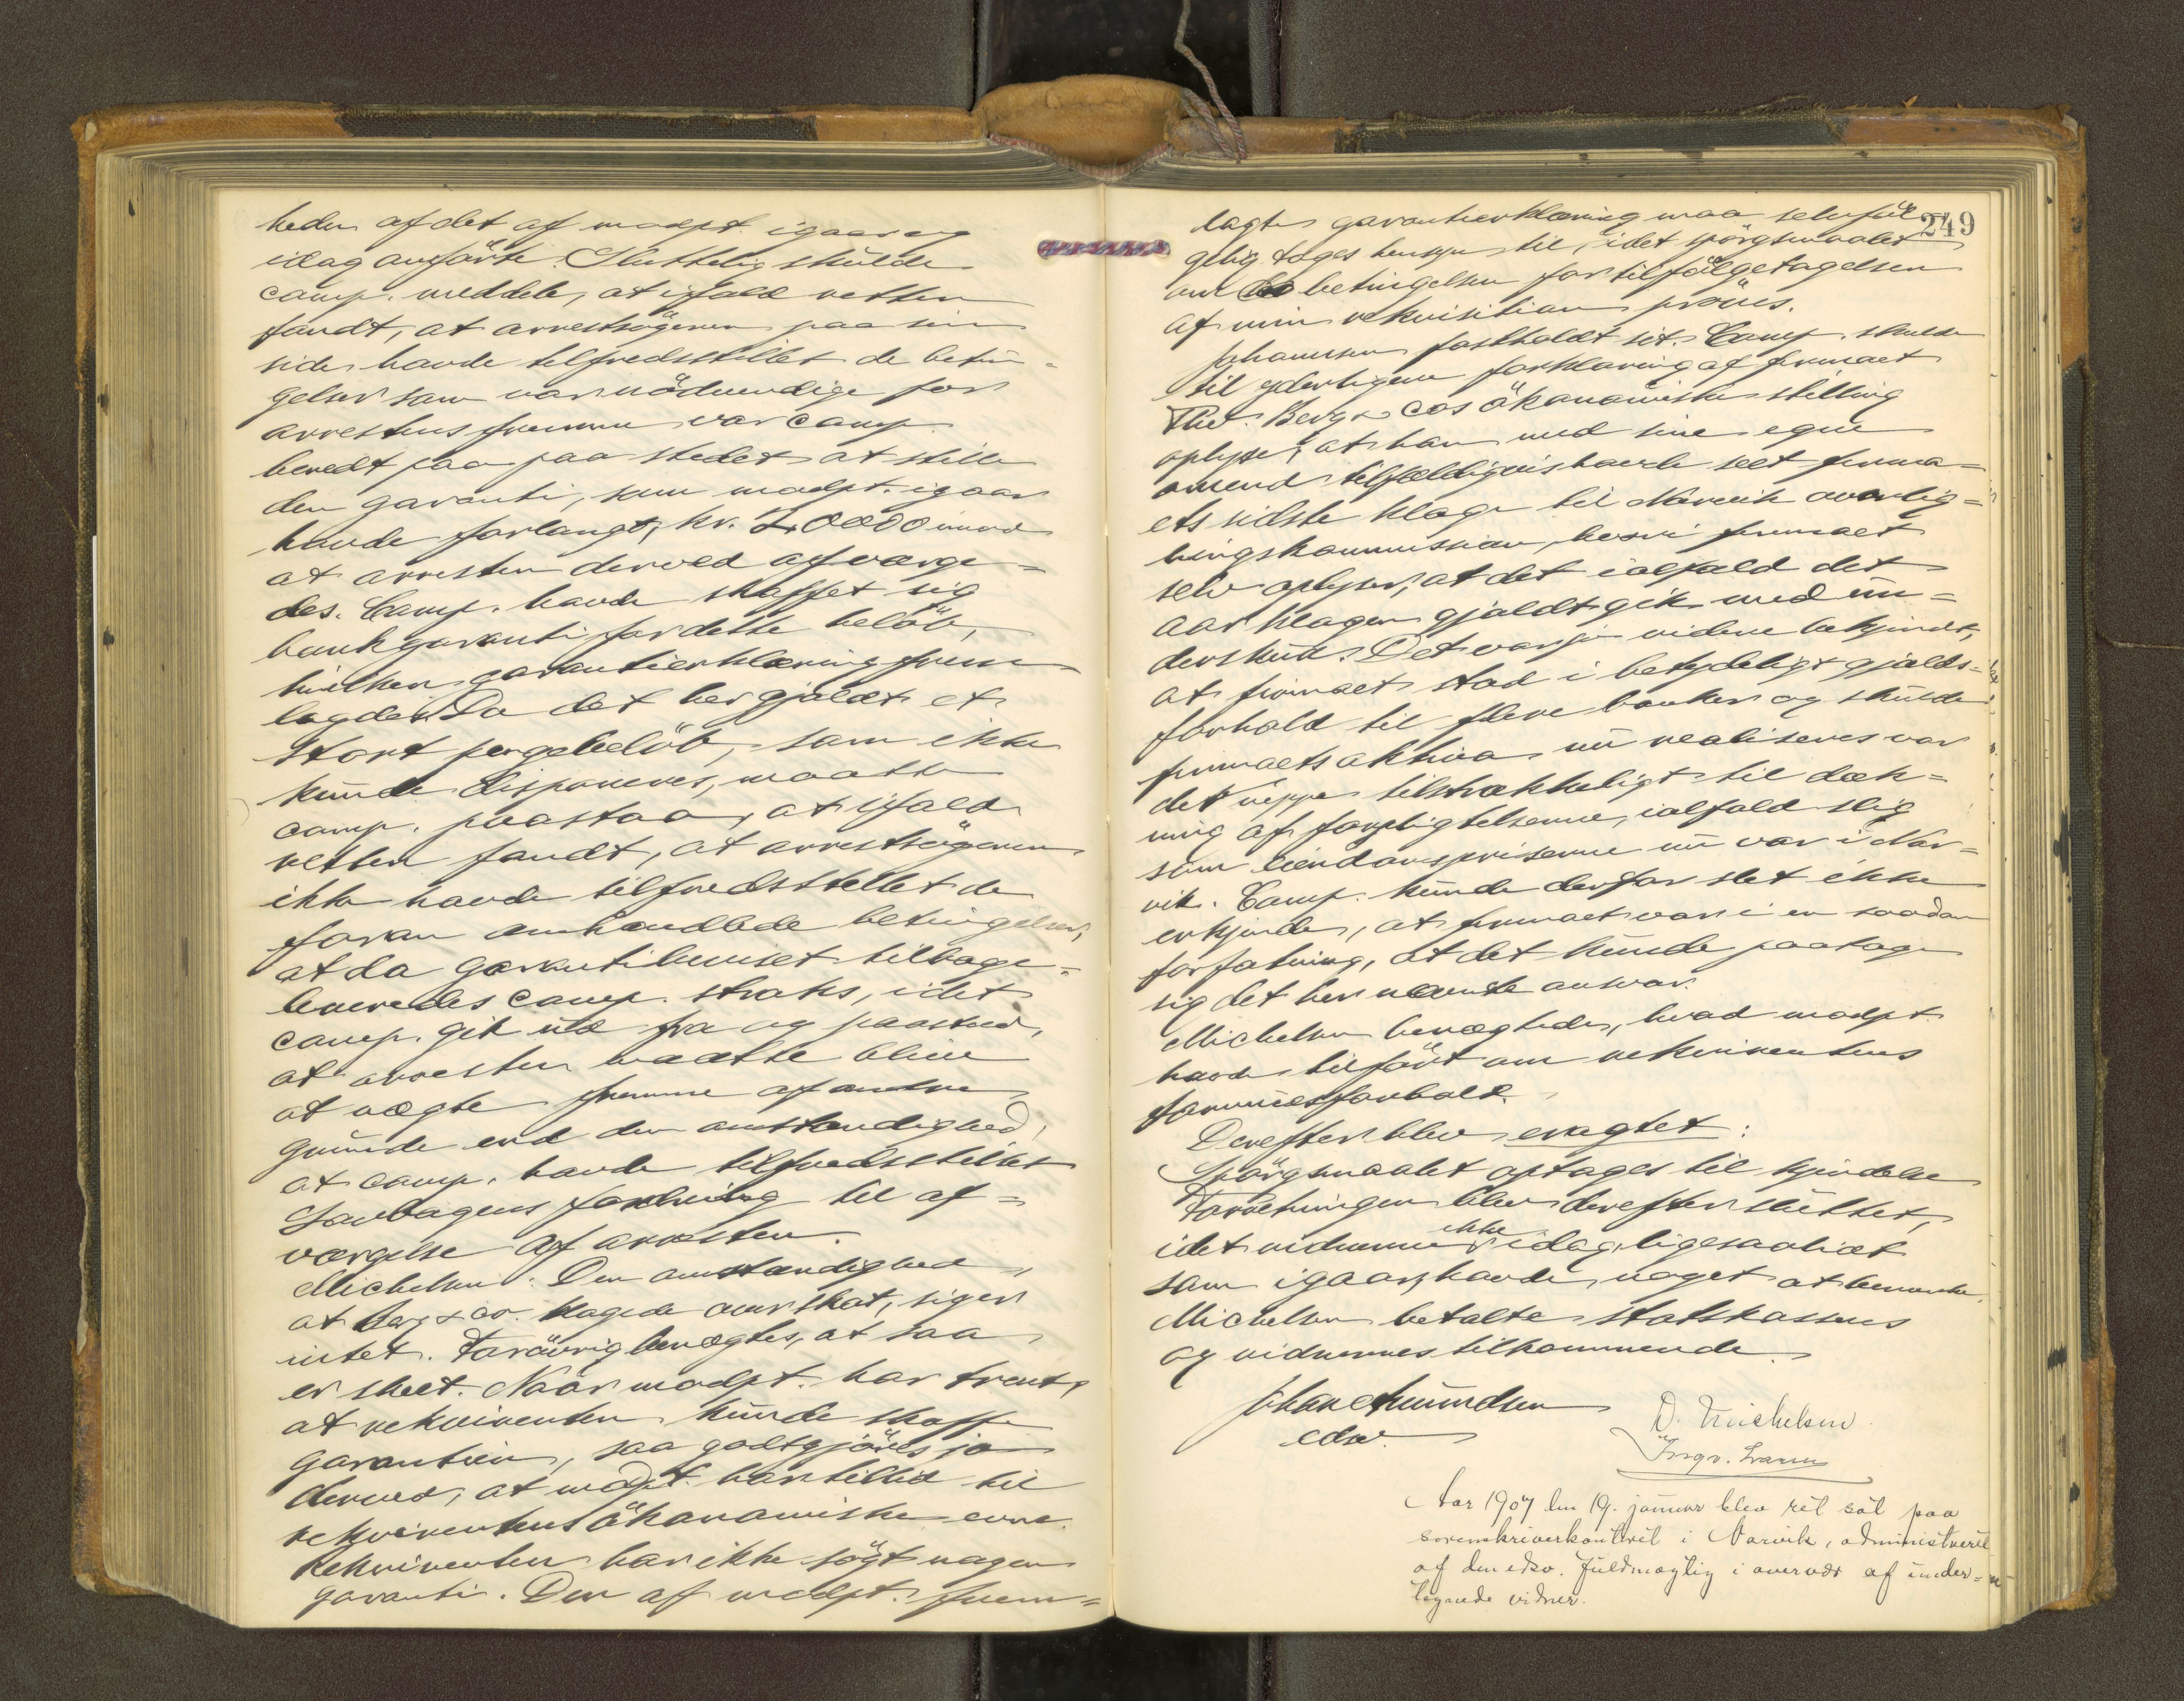 heden af det af modpt. igaar og
idag anförte. Sluttelig skulde
comp. meddele, at ifald retten
fandt, at arrestsögeren paa sin
side havde tilfredsstillet de betin-
gelser som var nödvendige for
arrestens fremme var comp.
beredt paa paa stedet at stille
den garanti, som modpt. igaar
havde forlangt, kr. 20000 imod
at arresten derved afværge-
des. Comp. havde skaffet sig
bankgaranti for dette belöb,
hvilken garantierklæring frem
lagdes. Da det her gjaldt et
stort pengebelöb, som ikke
kunde disponeres, maatte
comp. paastaa, at ifald
retten fandt, at arrestsögeren
ikke havde tilfredsstillet de
foran omhandlede betingelser,
at da garantibeviset tilbage-
leveredes comp. straks, idet
comp. gik ud fra og paastod,
at arresten maatte blive
at nægte fremme af andre
grunde end den omstændighed,
at comp. havde tilfredsstillet
Lovbogens fordring til af-
værgelse af arresten.
Michelsen: Den omstændighed,
at Berg & co. klagede over skat, siger
intet. Forövrig benægtes, at saa
er skeet. Naar modpt. har troet,
at rekvirenten kunde skaffe
garantien, saa godtgjöres jo
derved, at modpt. har tillid til
rekvirentens ökonomiske evne.
Rekvirenten har ikke sögt nogen
garanti. Den af modpt. frem-
249
lagte garantierklæring maa selvföl
gelig toges hensyn til, idet spörgsmaalet
om betingelsen for tilfölgetagelsen
af min rekvisition pröves.
Johannsen fastholdt sit. Comp. skulde
til yderligere forklaring af firmaet
Thv. Berg & Cos ökonomiske stilling
oplyse, at han med sine egne
öiend tilfældigvis havde seet firma-
ets sidste klage til Narvik overlig-
ningskommission, hvori firmaet
selv oplyser, at det ialfald det
aar klagen gjaldt gik med un-
derskud. Det var jo videre bekjendt,
at firmaet stod i betydeligt gjælds-
forhold til flere banker og skulde
firmaets aktiva nu realiseres var
det neppe tilstrækkeligt til dæk-
ning af forpligtelserne, ialfald slig
som eiendomspriserne nu var i Nar-
vik. Comp. kunde derfor slet ikke
erkjende, at firmaet var i en saadan
forfatning, at det kunde paatage
sig det her nævnte ansvar.
Michelsen benægtede, hvad modpt.
havde tilfört om rekvirentens
formuesforhold.
Derefter blev eragtet:
Spörgsmaalet optages til kjendelse
Forretningen blev derefter sluttet,
idet vidnerne ikke idag, ligesaalidt
som igaar, havde noget at bemærke.
Michelsen betalte statskassens
og vidnernes tilkommende.
Johan Amundsen
edsv.
D. Michelsen.
Ingv. Larsen
Aar 1907 den 19. januar blev ret sat paa
sorenskriverkontoret i Narvik, administreret
af den edsv. fuldmægtig i overvær af under-
tegnede vidner.